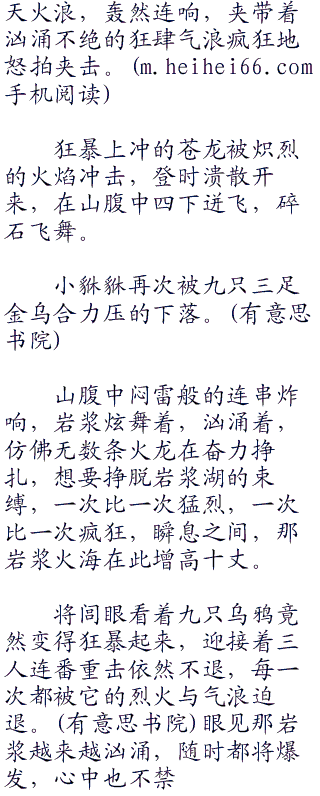 天火浪，轰然连响，夹带着
汹涌不绝的狂肆气浪疯狂地
怒拍夹击。(m.heihei66.com
手机阅读)
狂暴上冲的苍龙被炽烈
的火焰冲击，登时溃散开
来，在山腹中四下迸飞，碎
石飞舞。
小貅貅再次被九只三足
金乌合力压的下落。(有意思
书院)
山腹中闷雷般的连串炸
响，岩浆炫舞着，汹涌着，
仿佛无数条火龙在奋力挣
扎，想要挣脱岩浆湖的束
缚，一次比一次猛烈，一次
比一次疯狂，瞬息之间，那
岩浆火海在此增高十丈。
将闾眼看着九只乌鸦竟
然变得狂暴起来，迎接着三
人连番重击依然不退，每一
次都被它的烈火与气浪迫
退。(有意思书院)眼见那岩
浆越来越汹涌，随时都将爆
发，心中也不禁